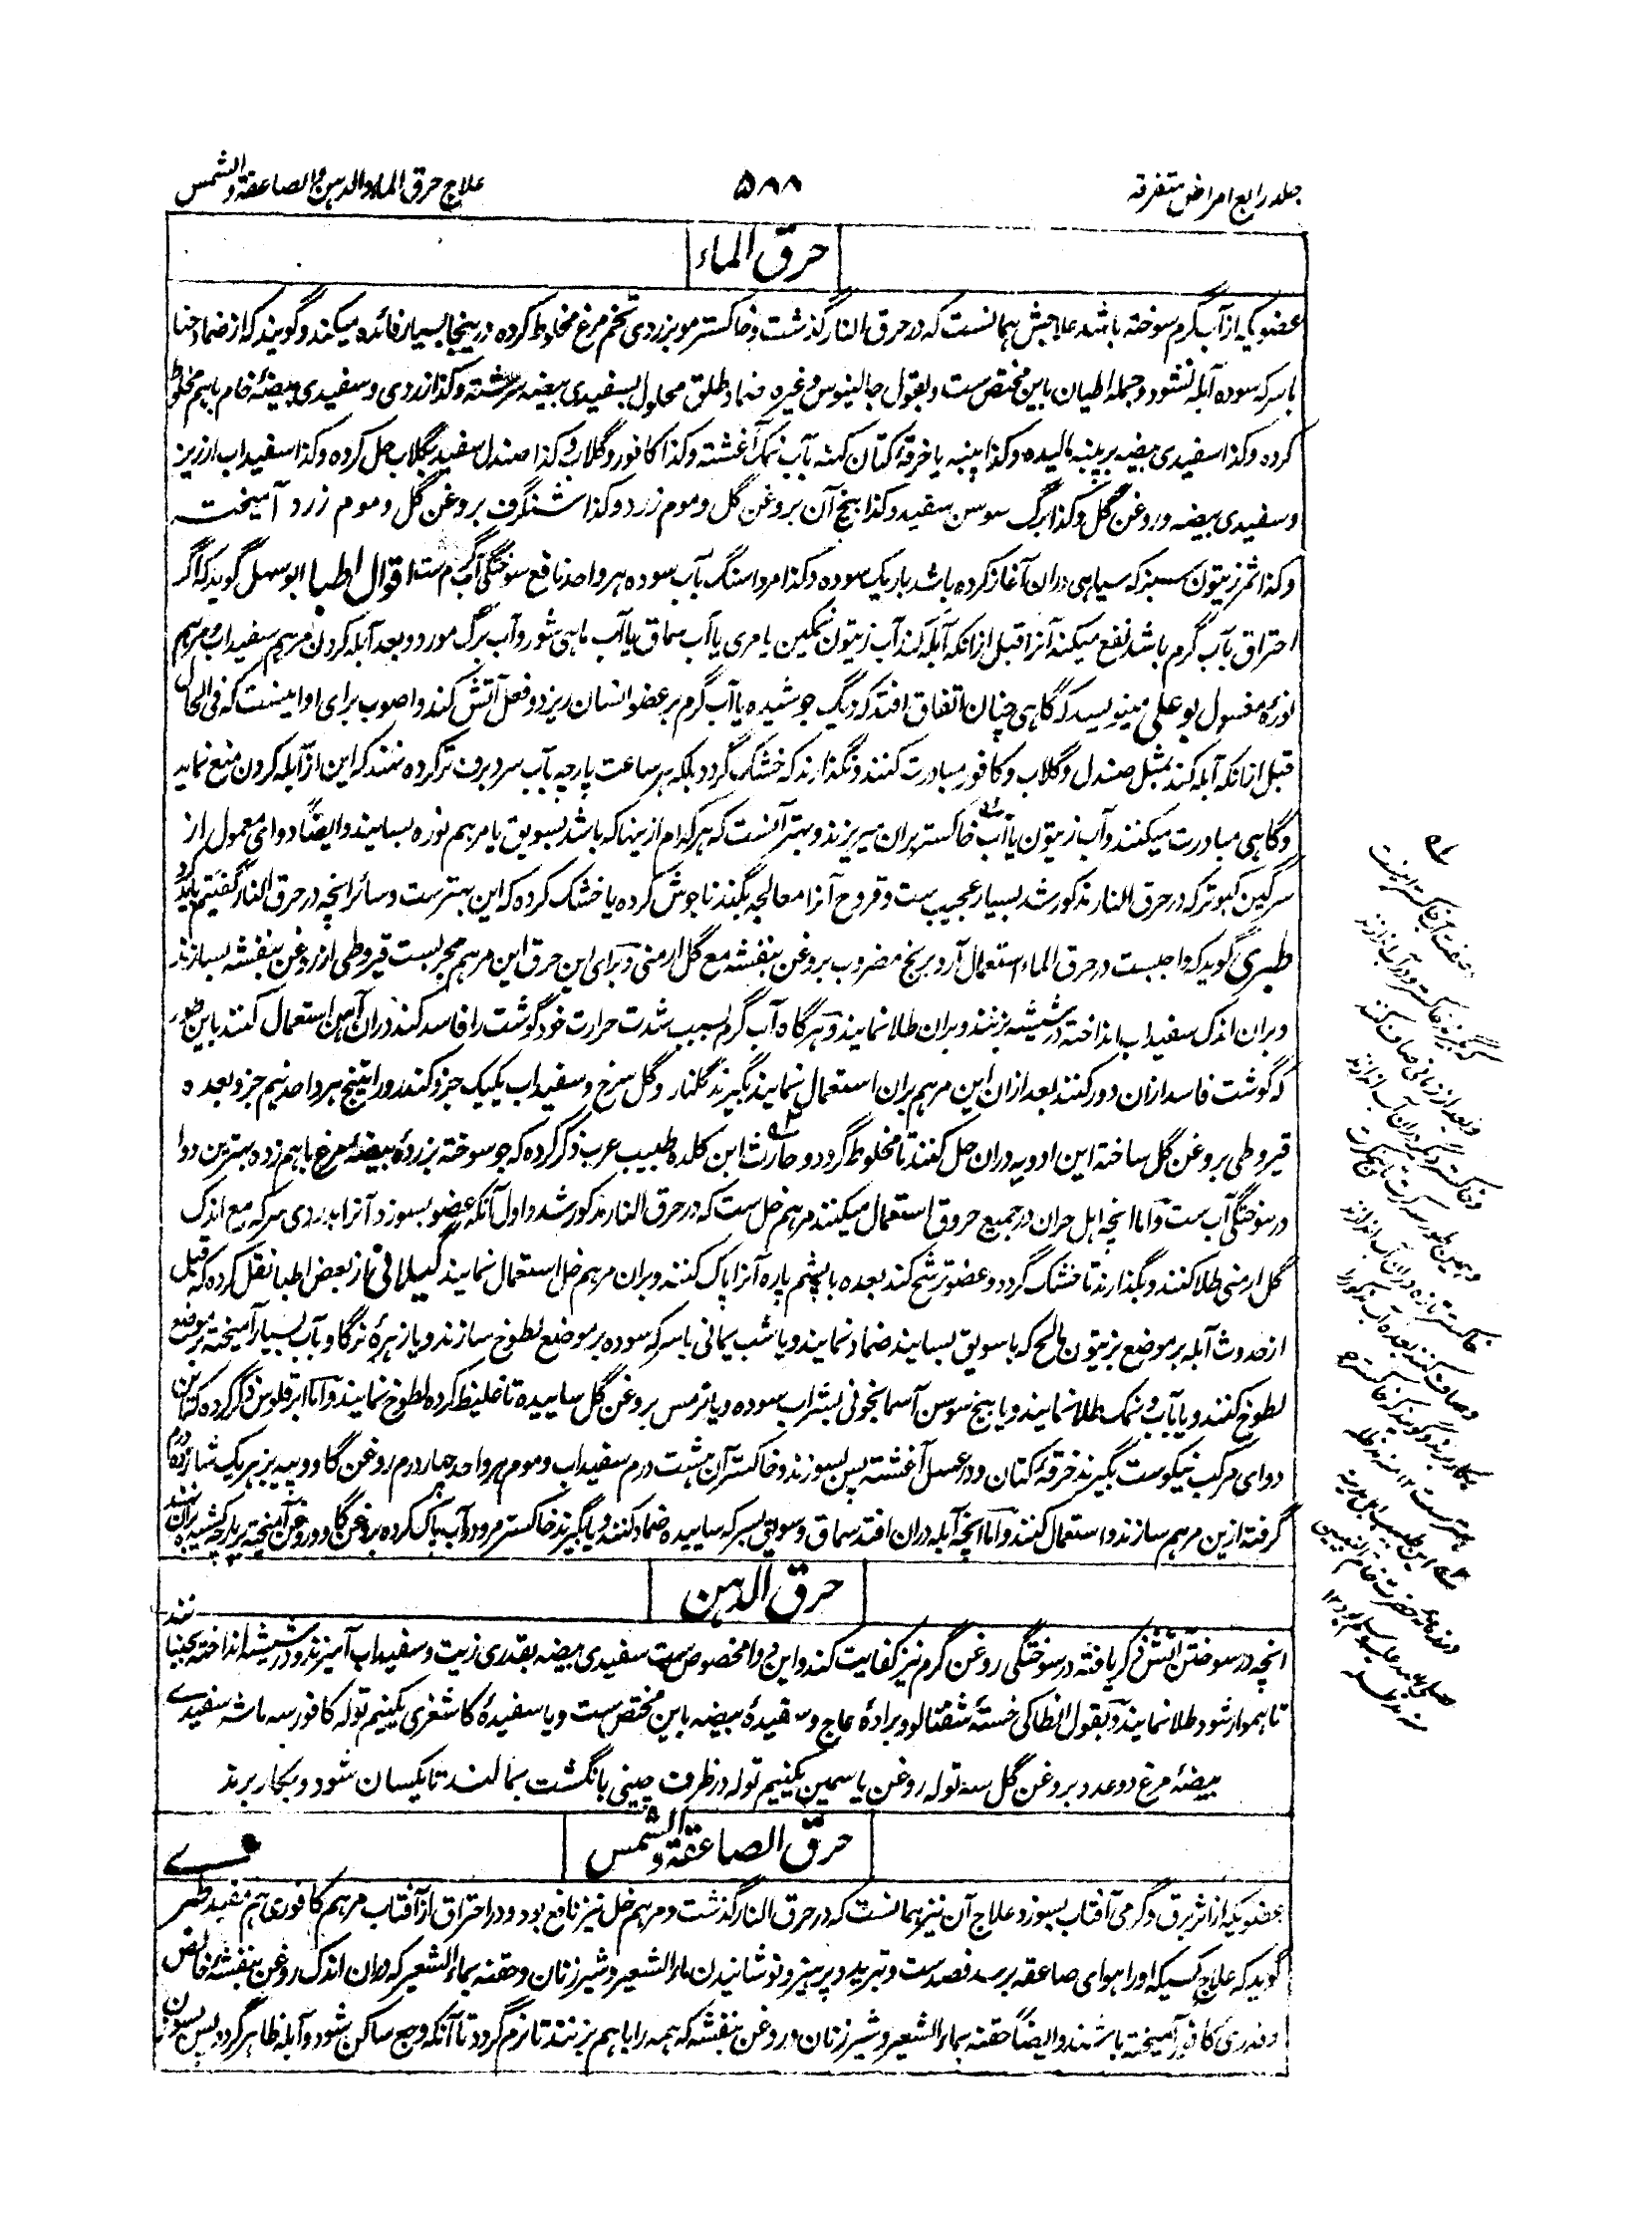 جلد رابع امراض متفرقه
۵۸۸
علاج حرق الماء والدهن والصاعقة والشمس
حرق الماء
عضویکه از آب گرم سوخته باشد علاجش همانست که در حرق النار گذشت و خاکستر مو بزردی تخم مرغ مخلوط کرده درینجا بسیار فائده میکند و گویند که از ضماد حنا
باسرکه سوده آبله نشود و جمله اطیان باین مختص ست و بقول جالینوس وغیره ضماد طلق محلول بسفیدی بیضه سرشته و کذا زردی و سفیدی بیضۀ خام باہم مخلوط
کرده و کذا سفیدی بیضه بر پنبه مالیده و کذا پنبه یا خرقۀ کتان کهنه بآب نمک آغشته و کذا کافور و گلاب و کذا صندل سفید بگلاب حل کرده و کذا سفیداب ارزیز
و سفیدی بیضه و روغن گل و کذا برگ سوسن سفید و کذا بیخ آن بروغن گل و موم زرد و کذا شنگرف بروغن گل و موم زرد آمیخته
و کذا ثمر زیتون سبز که سیاهی دران آغاز کرده باشد باریک سوده و کذا مرداسنگ بآب سوده هر واحد نافع سوختگی آب گرم ست اقوال اطبا ابوسهل گوید که اگر
احتراق بآب گرم باشد نفع میکند آنرا قبل ازانکه آبله کند آب زیتون نمکین یا مری یا آب سماق یا آب ماهی شور و آب برگ مورد و بعد آبله کردن مرہم سفیداب و مرہم
نورۀ مغسول بوعلی مینویسد که گاهی چنان اتفاق افتد که دیگ جوشیده یا آب گرم بر عضو انسان ریزد و فعل آتش کند و اصوب برای او اینست که فی الحال
قبل ازانکه آبله کند بمثل صندل و گلاب و کافور مبادرت کنند و نگذارند که خشک گردد بلکه هر ساعت پارچه بآب سرد برف تر کرده نهند که این از آبله کردن منع نماید
و گاهی مبادرت میکنند و آب زیتون یا آب خاکستر بران میریزند و بهتر آنست که هر کدام ازینها که باشد بسویق یا مرہم نوره بسایند و ایضاً دوای معمول از
سرگین کبوتر که در حرق النار مذکور شد بسیار عجیب ست و قروح آنرا معالجه بگندنا جوش کرده یا خشک کرده که این بهتر ست و سائر انچه در حرق النار گفتیم باید کرد
طبری گوید که واجبست در حرق الماء استعمال آرد برنج مضروب بروغن بنفشه مع گل ارمنی و برای این حرق این مرہم مجربست قیروطی از روغن بنفشه بسازند
و بران اندک سفیداب انداخته در شیشه بزنند و بران طلا نمایند و هرگاه آب گرم بسبب شدت حرارت خود گوشت را فاسد کند دران آهن استعمال کنند باین طور
که گوشت فاسد ازان دور کنند بعد ازان این مرہم بران استعمال نمایند بگیرند گلنار و گل سرخ و سفیداب یکیک جزو کندر و راتینج هر واحد نیم جزو بعده
قیروطی بروغن گل ساخته این ادویه دران حل کنند تا مخلوط گردد و حارث ابن کلده طبیب عرب ذکر کرده که جو سوخته بزردۀ بیضۀ مرغ باہم زده بهترین دوا
در سوختگی آب ست و اما انچه اهل حران در جمیع حروق استعمال میکنند مرہم خل ست که در حرق النار مذکور شد و اول آنکه عضو بسوزد آنرا بدردی سرکه مع اندک
گل ارمنی طلا کنند و بگذارند تا خشک گردد و عضو ترشح کند بعده با پشم پاره آنرا پاک کنند و بران مرہم خل استعمال نمایند گیلانی از بعض اطبا نقل کرده که قبل
از حدوث آبله بر موضع بزیتون مالح که با سویق بسایند ضماد نمایند و یا شب یمانی باسرکه سوده بر موضع لطوخ سازند و یا زهرۀ نرگاو بآب بسیار آمیخته بر موضع
لطوخ کنند و یا بآب و نمک طلا نمایند و یا بیخ سوسن آسمانجونی بشراب سوده و یا ترمس بروغن گل ساییده تا غلیظ کرده لطوخ نمایند و اما ابرقلوس ذکر کرده که این
دوای مرکب نیکوست بگیرند خرقۀ کتان و در عسل آغشته پس بسوزند و خاکستر آن هشت درم سفیداب و موم هر واحد چهار درم روغن گاو و پیه بز هر یک شانزده درم
گرفته ازین مرہم سازند و استعمال کنند و اما انچه آبله دران افتد سماق و سویق بسرکه ساییده ضماد کنند و یا بگیرند خاکستر مرو و در آب پاک کرده بروغن گاو و روغن آمیخته بر پارچه کشیده بران نهند
حرق الدهن
انچه در سوختن آتش ذکر یافته در سوختگی روغن گرم نیز کفایت کند و این دوا مخصوص ست سفیدی بیضه بقدری زیت و سفیداب آمیزند و در شیشه انداخته بجنبانند
تا هموار شود طلا نمایند و بقول انطاکی خستۀ شفتالو و برادۀ عاج و سفیدۀ بیضه باین مختص ست و یا سفیدۀ کاشغری یکنیم توله کافور سه ماشه سفیدے
بیضۀ مرغ دو عدد بروغن گل سه توله روغن یاسمین یکنیم توله در ظرف چینی بانگشت بمالند تا یکسان شود و بکار برند
حرق الصاعقة والشمس
عضویکه از اثر برق و گرمی آفتاب بسوزد علاج آن نیز همانست که در حرق النار گذشت و مرہم خل نیز نافع بود و در احتراق از آفتاب مرہم کافوری ہم مفید طبری
گوید که علاج کسیکه اورا هوای صاعقه برسد فصد ست و تبرید و پرهیز و نوشانیدن ماء الشعیر و شیر زنان و حقنه بماء الشعیر که دران اندک روغن بنفشۀ خالص
و قدری کافور آمیخته باشند و ایضاً حقنه بماء الشعیر و شیر زنان و روغن بنفشه که همه را باہم بزنند تا نرم گردد تا آنکه وجع ساکن شود و آبله ظاهر گردد پس بسوزن
صفت آب خاکستر اینست